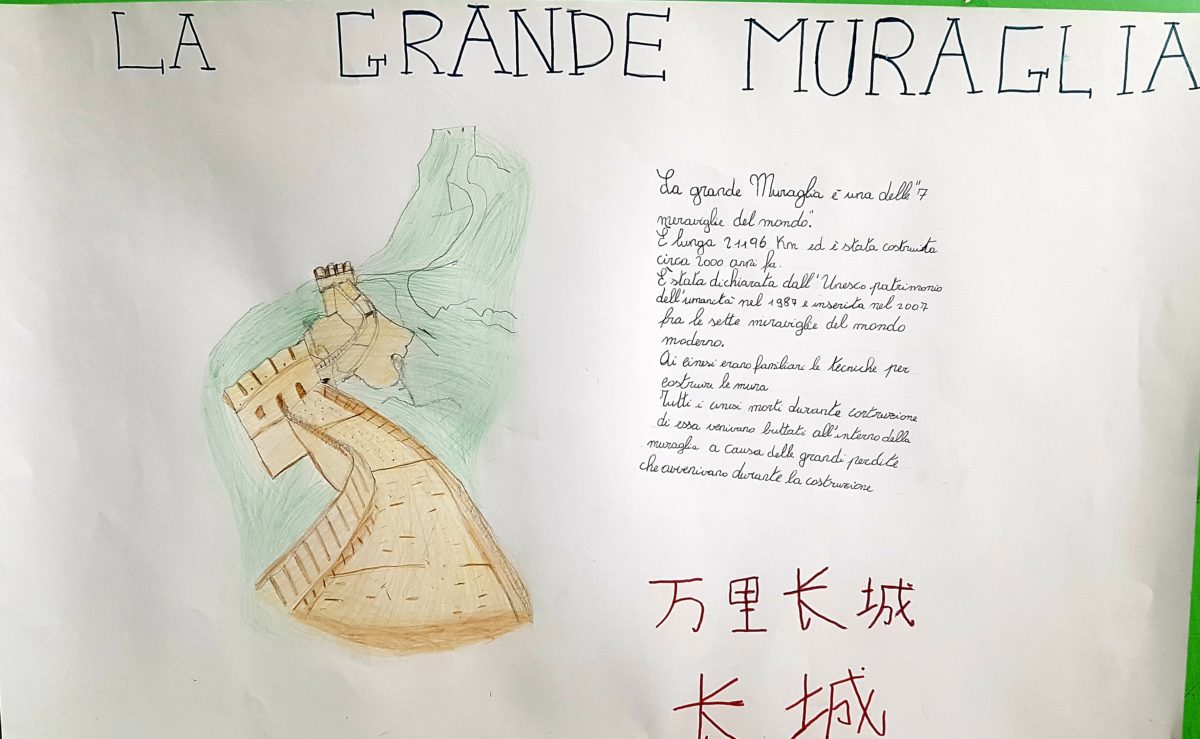 LA GRANDE MURAGLIA
La grande Muraglia è una delle "7
meraviglie del mondo".
È lunga 21196 Km ed è stata costruita
circa 2000 anni fa.
È stata dichiarata dall'Unesco patrimonio
dell'umanità nel 1987 e inserita nel 2007
fra le sette meraviglie del mondo
moderno.
Ai cinesi erano familiari le tecniche per
costruire le mura
Tutti i cinesi morti durante costruzione
di essa venivano buttati all'interno della
muraglia a causa delle grandi perdite
che avvenivano durante la costruzione
万里长城
长城